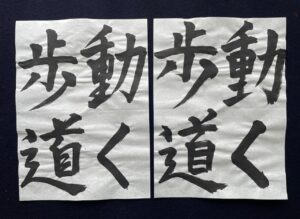 動く
歩道
動く
歩道